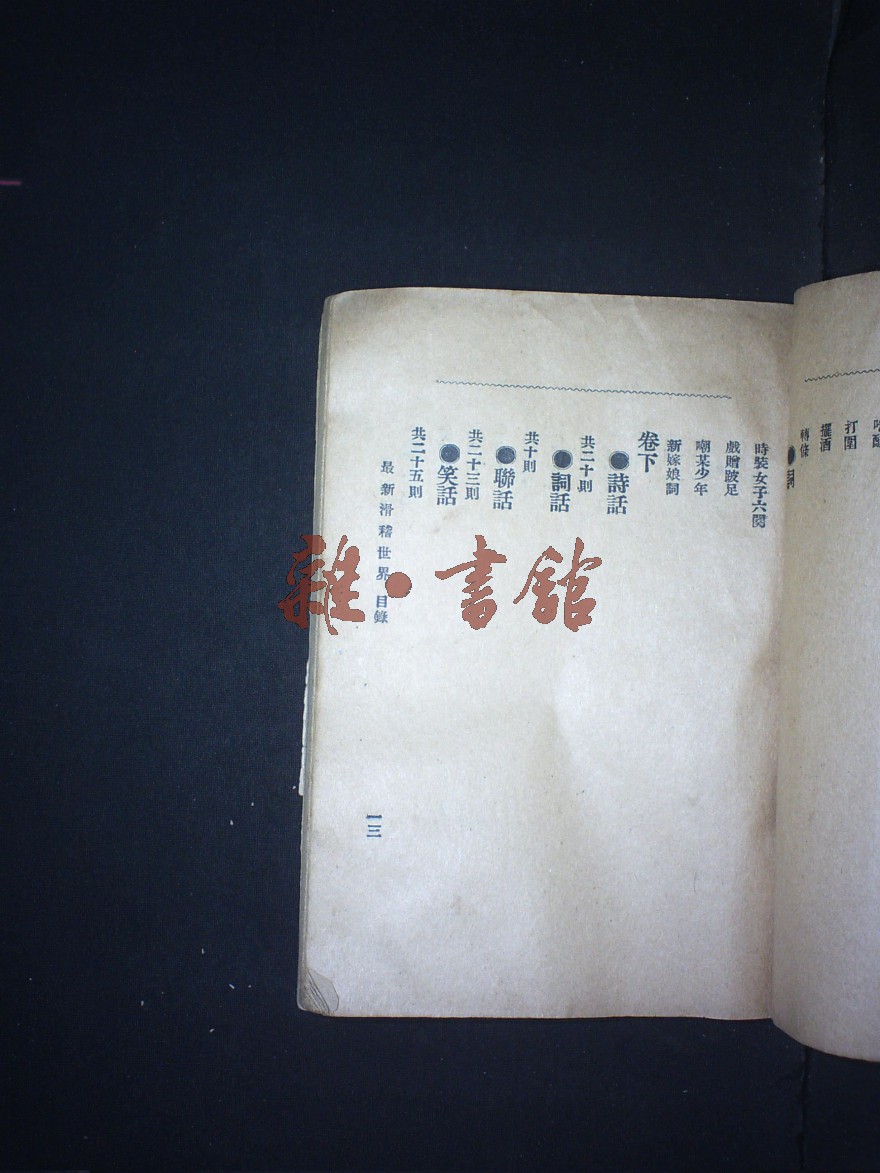 打圍
擺酒
轉條
●詞
時裝女子六闋
戲贈跛足
嘲某少年
新嫁娘詞
卷下
●詩話
共二十則
●詞話
共十則
●聯話
共二十三則
●笑話
共二十五則
最新滑稽世界 目錄
一三
雜·書館